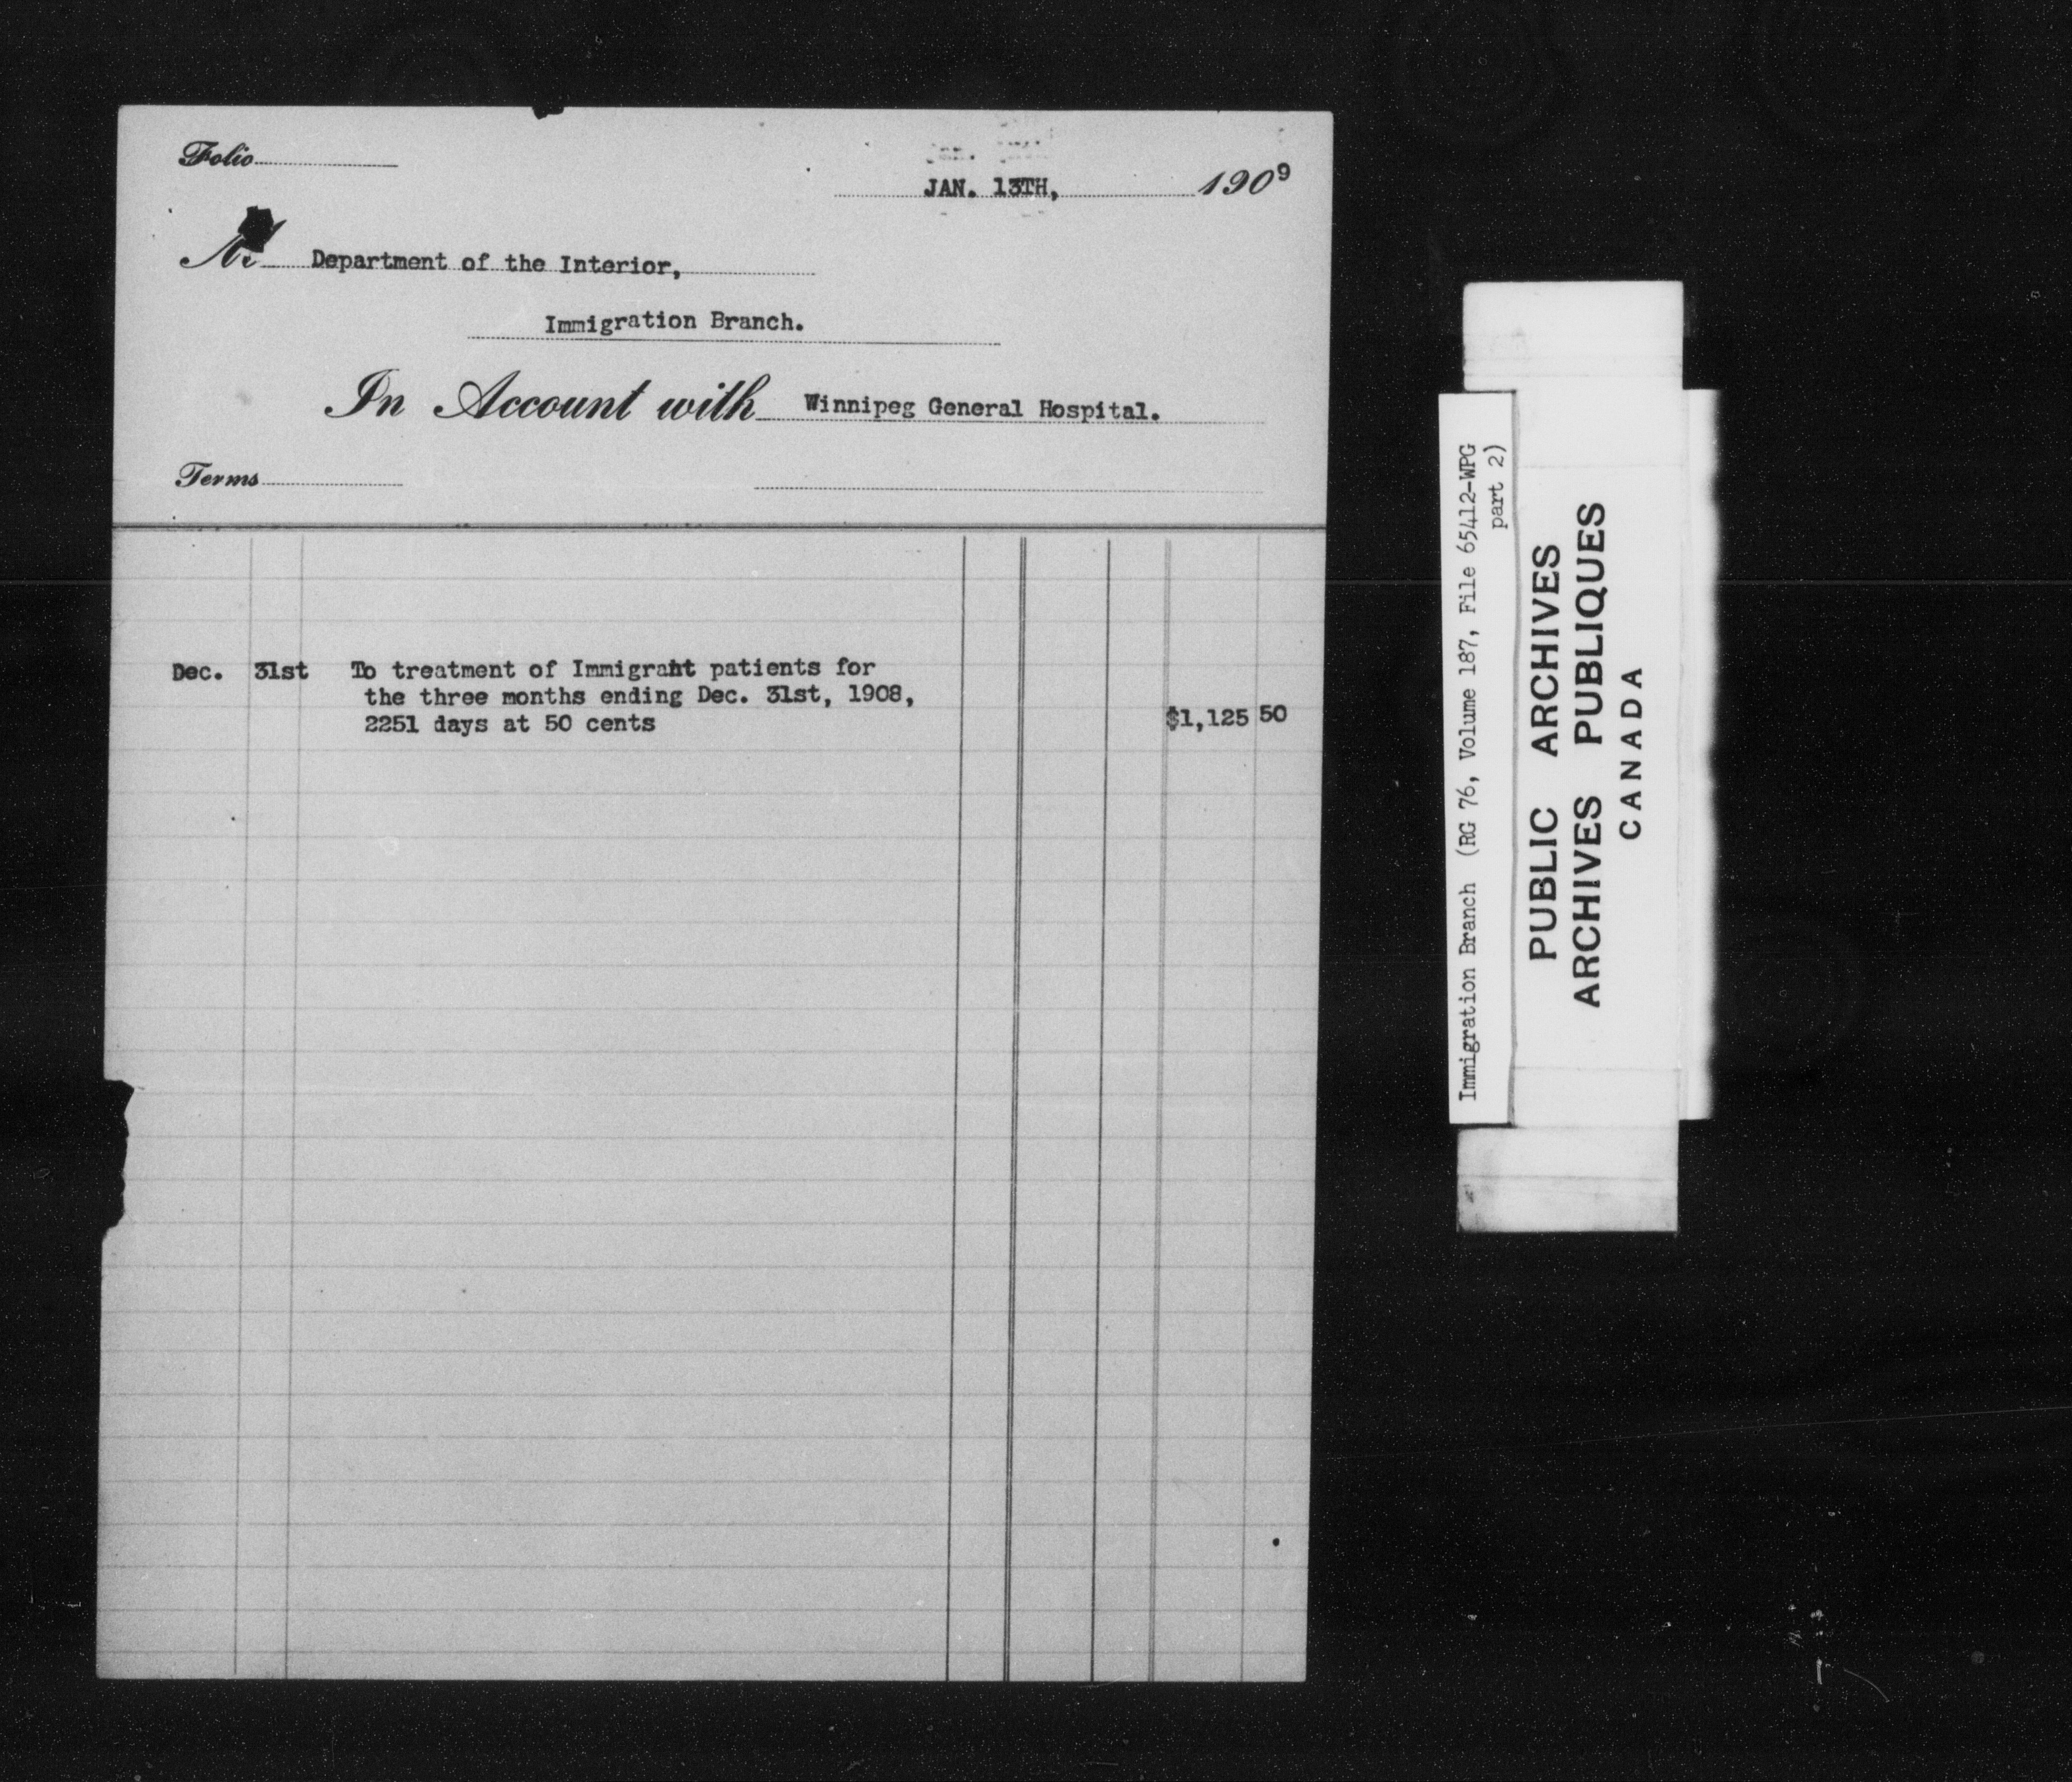 Folio
JAN. 13TH, 1909
M Department of the Interior,
Immigration Branch.
In Account with Winnipeg General Hospital.
Terms
Dec. 31st To treatment of Immigraht patients for
the three months ending Dec. 31st, 1908,
2251 days at 50 cents $1,125 50
Immigration Branch (RG 76, Volume 187, File 65412-WPG
part 2)
PUBLIC ARCHIVES
ARCHIVES PUBLIQUES
CANADA